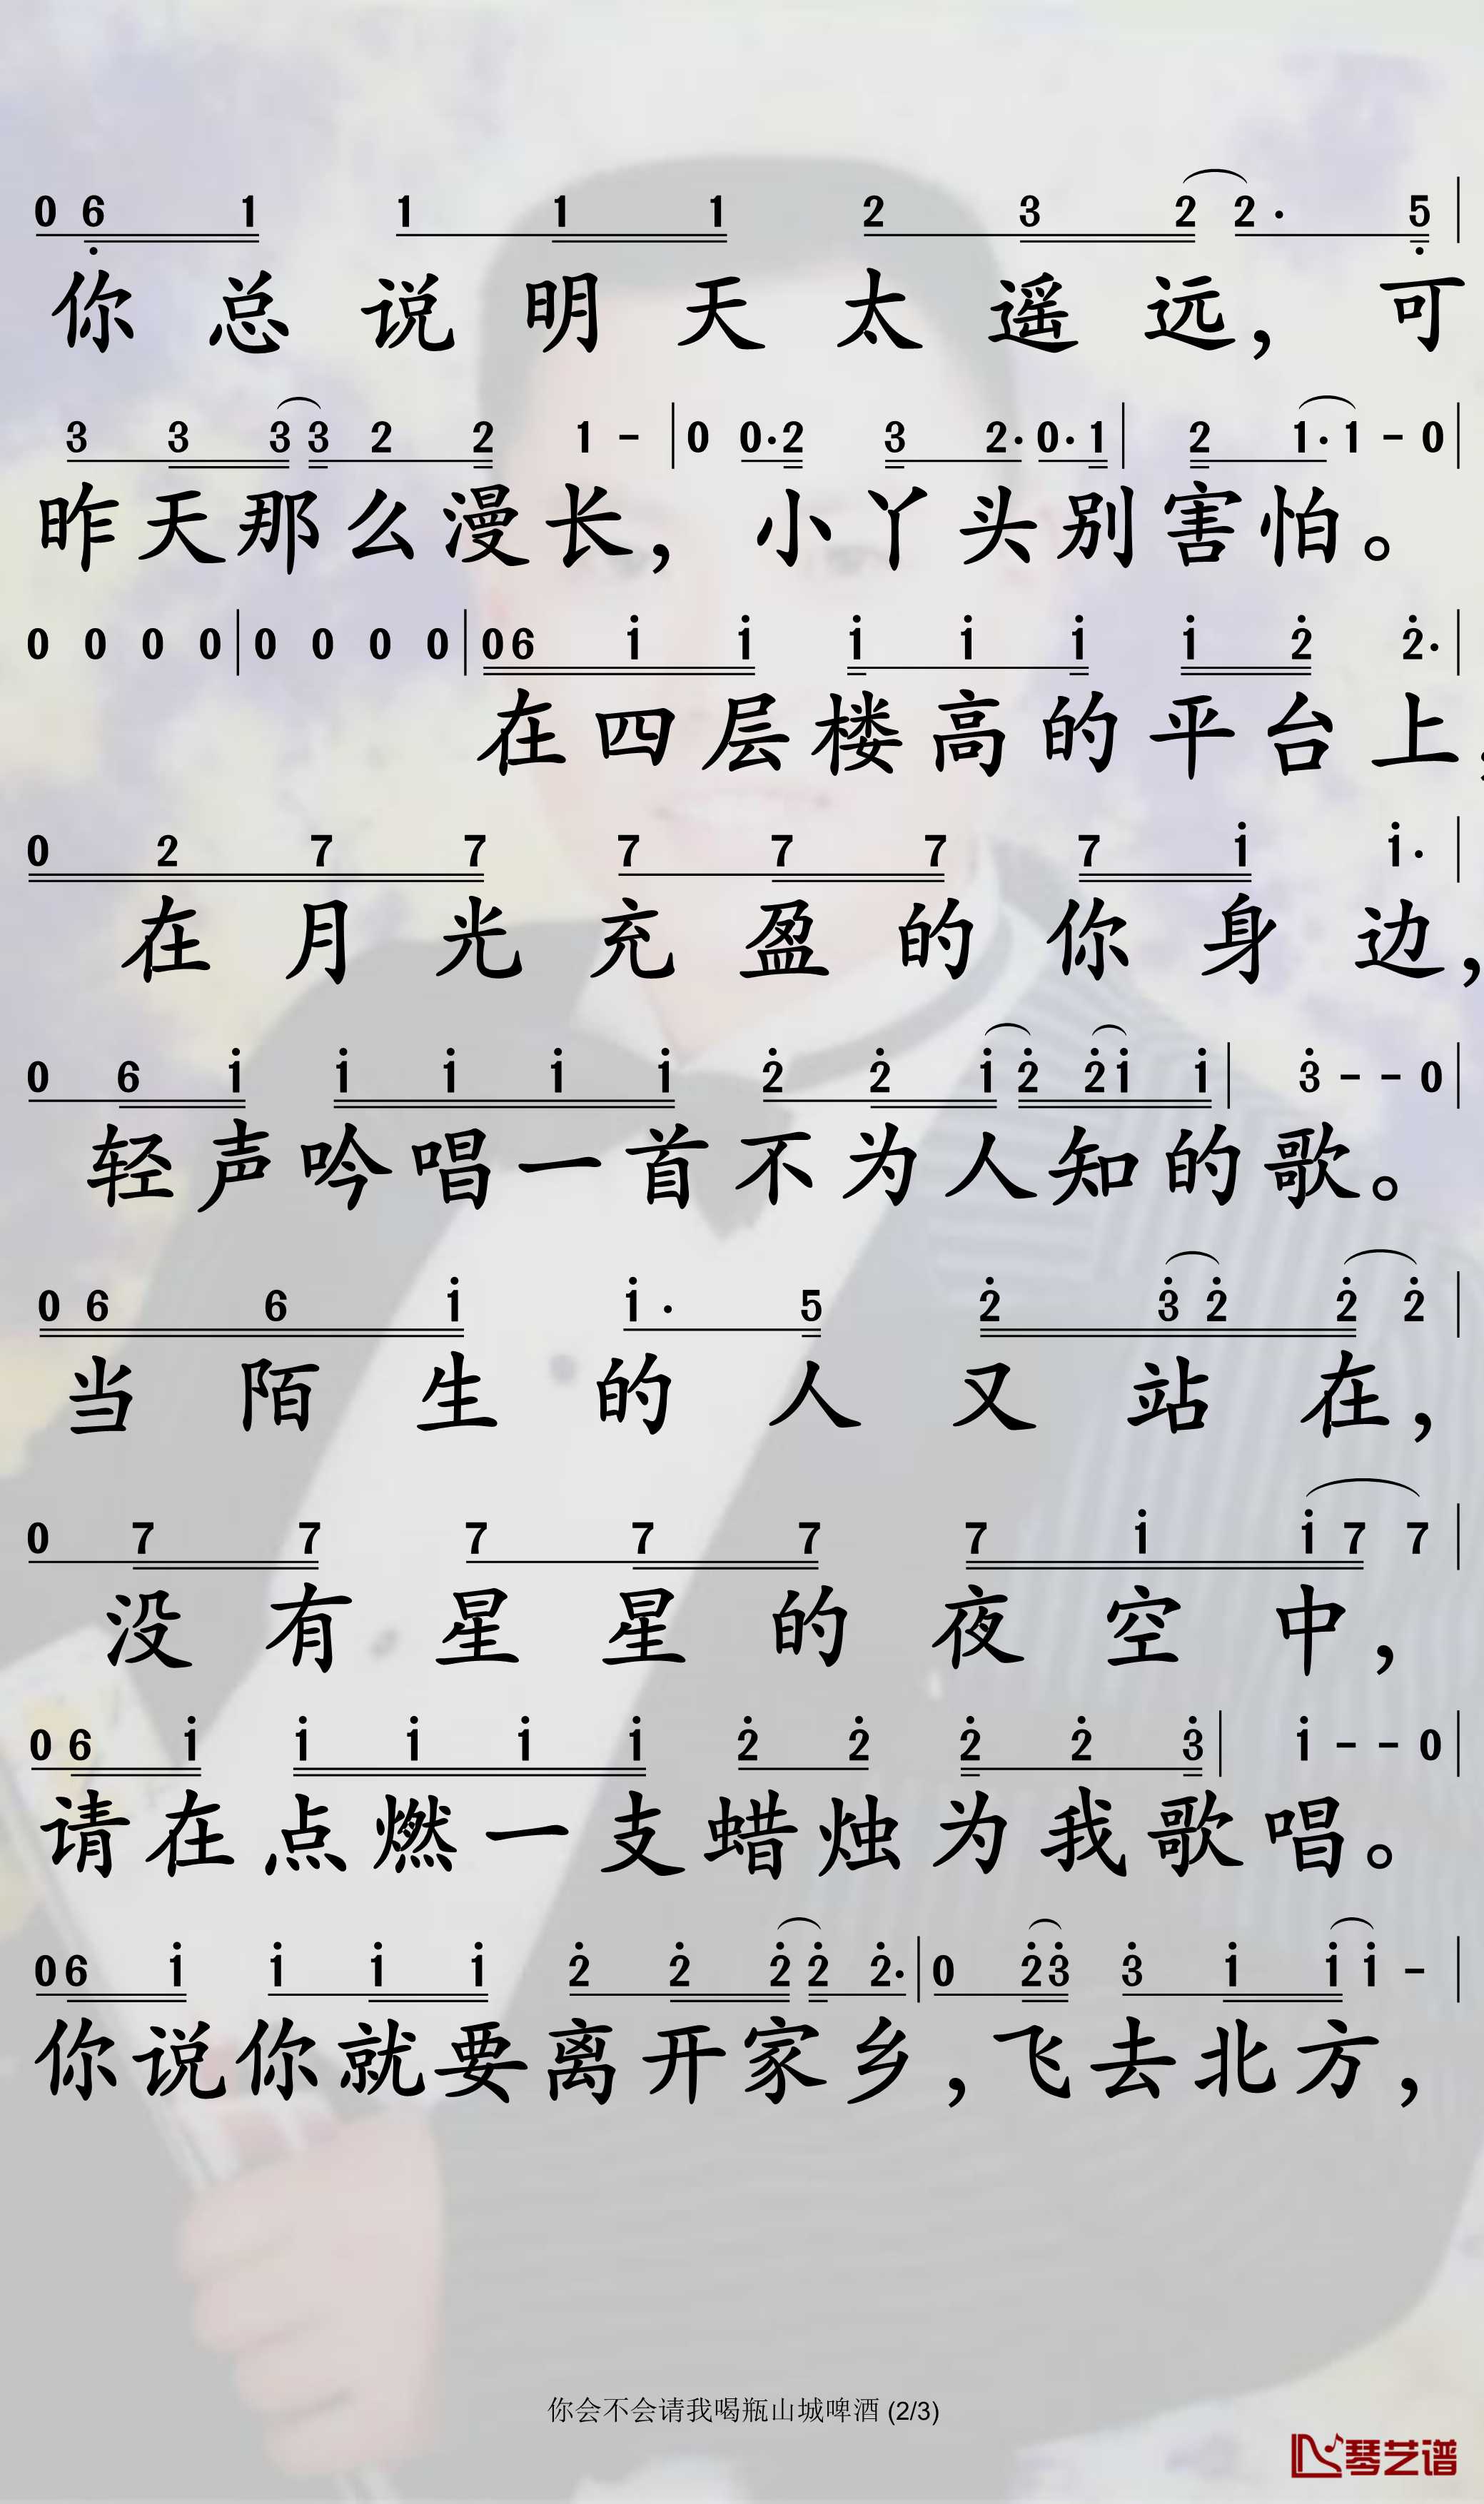 0 6 1 1 1 1 2 3 2 2· 5
你总说明天太遥远，可
3 3 3 3 2 2 1 - 0 0·2 3 2·0·1 2 1·1 - 0
昨天那么漫长，小丫头别害怕。
0 0 0 0 0 0 0 0 0 6 1 1 1 1 1 1 2 2·
在四层楼高的平台上，
0 2 7 7 7 7 7 7 1 1·
在月光充盈的你身边，
0 6 1 1 1 1 1 2 2 1 2 2 1 1 3 - - 0
轻声吟唱一首不为人知的歌。
0 6 6 1 1· 5 2 3 2 2 2
当陌生的人又站在，
0 7 7 7 7 7 7 1 1 7 7
没有星星的夜空中，
0 6 1 1 1 1 1 2 2 2 2 3 1 - - 0
请在点燃一支蜡烛为我歌唱。
0 6 1 1 1 1 2 2 2 2 2· 0 2 3 3 1 1 1 -
你说你就要离开家乡，飞去北方，
你会不会请我喝瓶山城啤酒 (2/3)
琴艺谱